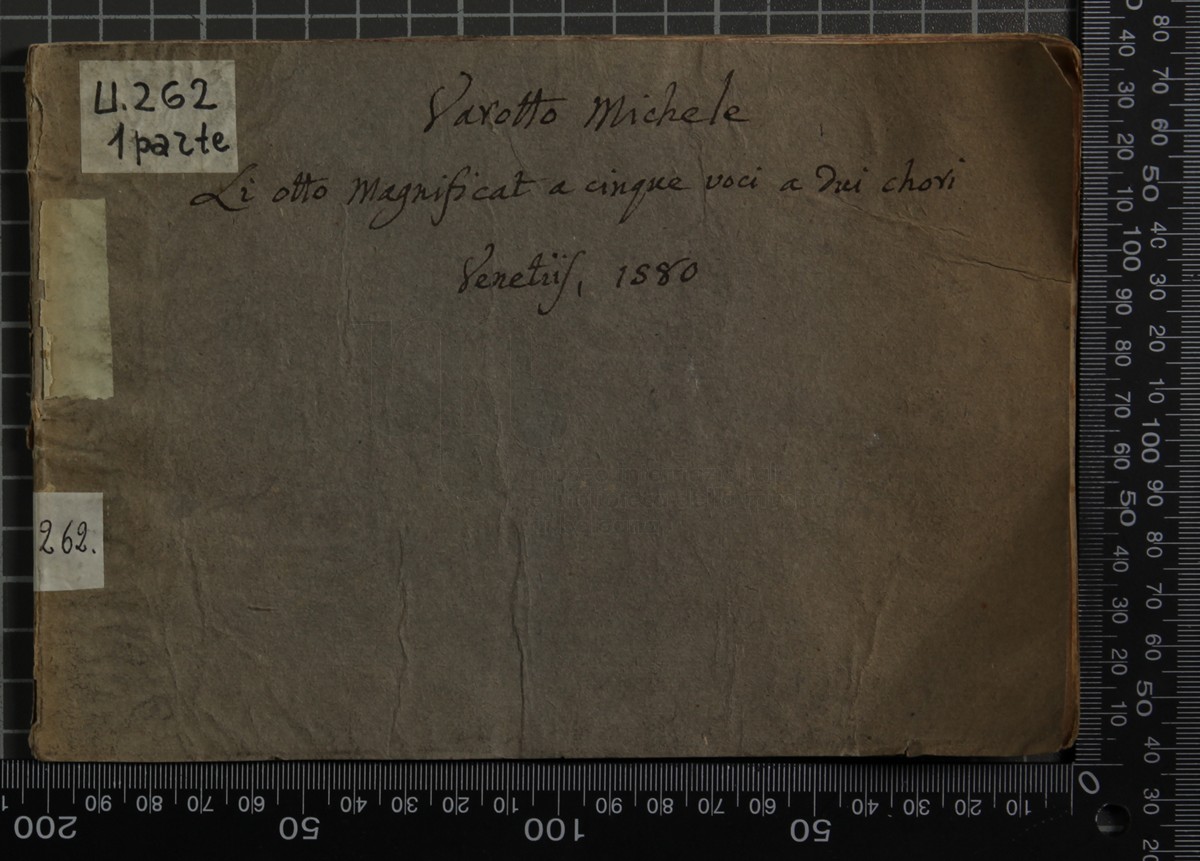 U.262
1 parte
Varotto Michele
Li otto Magnificat a cinque voci a dui chori
Venetiis, 1580
262.